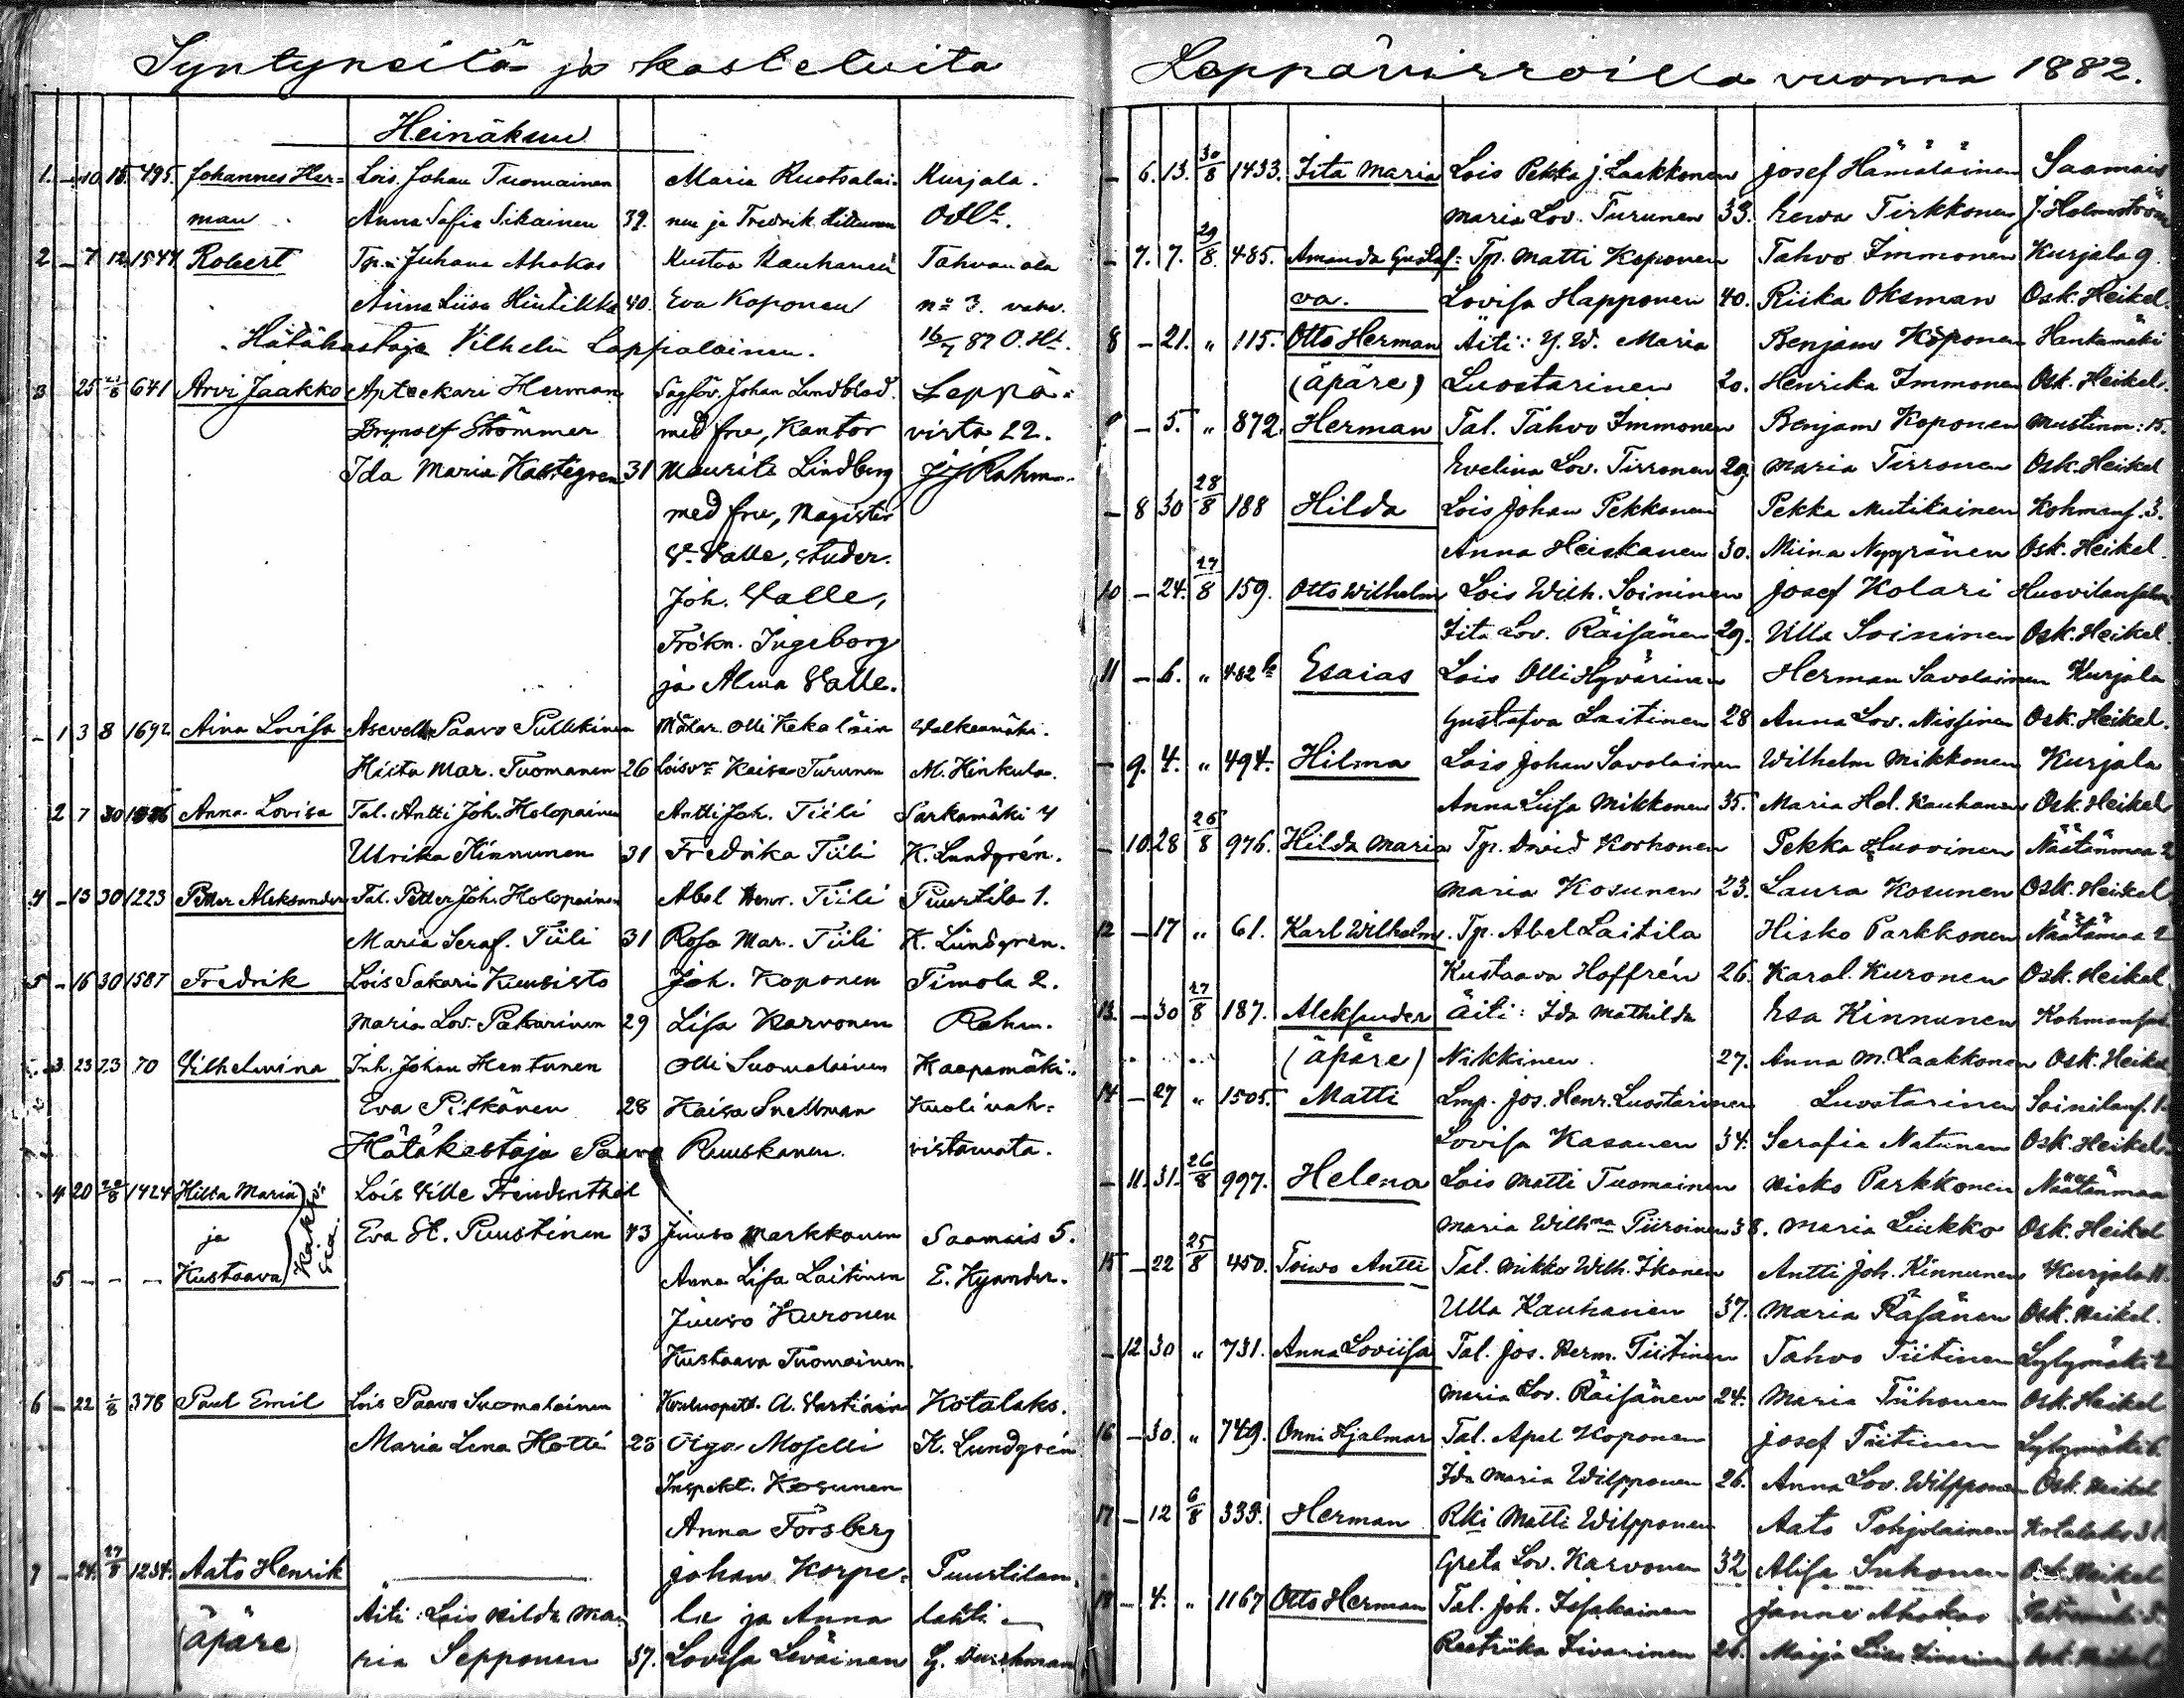 Syntyneitä ja kastetuita
Heinäkuu
1. – 10 15. 495. Johannes Her= Lois. Johan Tuomainen Maria Ruotsalai- Kurjala.
man Anna Sofia Sikainen 39. nen ja Fredrik
2 – 7 12 1544 Robert Tp. Juhana Ahokas Kustaa Kauhanen Tahvanala
Anna Liisa 40. Eva Koponen nº 3.
Hätäkastaja Vilhelm Lappalainen. 16/7 82 O. Ht.
3 25 641 Arvi Jaakko Apteekari Herman Johan Lundblad Leppä=
Brynolf Strömmer med fru, Kantor virta 22.
Ida Maria 31 Maurits Lindberg
med fru, Magister
V. Valle, studer.
Joh. Valle,
Frökn. Ingeborg
ja Alma Valle.
– 1 3 8 1692 Aina Lovisa Asevelv. Paavo Pulkkinen Olli Valkeamäki.
Hista Mar. Tuomanen 26 Kaisa Turunen M. Hinkula.
2 7 30 Anna Lovisa Tal. Antti Joh. Holopainen Antti Joh. Tiili Sarkamäki 4
Ulrika Kinnunen 31 Fredrika Tiili K. Lundgrén.
4 – 13 30 1223 Petter Aleksander Tal. Petter Joh. Holopainen Abel Henr. Tiili Puurtila 1.
Maria Seraf. Tiili 31 Rosa Mar. Tiili K. Lundgrén.
5 – 16 30 1587 Fredrik Lois Sakari Kuusisto Joh. Koponen Timola 2.
Maria Lov. Pakarinen 29 Lisa Karvonen Rahm.
3 23 23 70 Vilhelmina Inh. Johan Hentunen Olli Suomalainen Haapamäki.
Eva Pitkänen 28 Kaisa Snellman Kuoli vah=
Hätäkastaja Paavo Ruuskanen. vistamata.
4 20 22/8 1424 Hilta Maria Lois Ville Freudenthal
ja Kaksosia. Eva St. Puustinen 43 Juuso Markkanen Saamais 5.
5 – – – Kustaava Anna Lisa Laitinen E. Kyander.
Juuso Kuronen
Kustaava Tuomainen.
6 – 22 1/8 378 Paul Emil Lois Paavo Suomalainen A. Kotalaks.
Maria Lena Hotti 25 Olga Moselli K. Lundgrén
Inspekt. Kosunen
Anna Forsberg
7 – 24. 27/8 1234. Aato Henrik Johan Korpe= Puurtilan
Äiti: Lois Hilda Ma- la ja Anna lahti
(äpäre) ria Sepponen 37. Lovisa Leväinen
Leppävirroilla vuonna 1882.
– 6. 13. 30/8 1433. Iita Maria Lois Pekka J. Laakkonen Josef Hämäläinen Saamais
Maria Lov. Turunen 33. Eewa Tirkkonen J. Holmström
– 7. 7. 29/8 485. Amanda Gustaf= Tp. Matti Koponen Tahvo Immonen Kurjala 9.
va. Lovisa Happonen 40. Riika Oksman Osk. Heikel.
8 – 21. " 115. Otto Herman Äiti: Y. W. Maria Benjam Koponen Hantamäki
(äpäre) Luostarinen 20. Henrika Immonen Osk. Heikel.
9 – 5. " 872. Herman Tal. Tahvo Immonen Benjam Koponen Mustinm: 15.
Evelina Lov. Tirronen 29. Maria Tirronen Osk. Heikel
– 8 30 28/8 188 Hilda Lois Johan Pekkanen Pekka Mutikainen
Anna Heiskanen 30. Miina Nyyränen Osk. Heikel.
10 – 24. 27/8 159. Otto Wilhelm Lois Wilh. Soininen Josef Kolari
Iita Lov. Räisänen 29. Ulla Soininen Osk. Heikel
11 – 6. " 482 b Esaias Lois Olli Hyvärinen Herman Savolainen Kurjala
Gustafva Laitinen 28 Anna Lov. Nissinen Osk. Heikel.
– 9. 4. " 494. Hilma Lois Johan Savolainen Wilhelm Mikkonen Kurjala
Anna Liisa Mikkonen 35. Maria Hel. Kauhanen Osk. Heikel
– 10. 28 26/8 976. Hilda Maria Tp. David Korhonen Pekka Huovinen Näätänmaa 2
Maria Kosunen 23. Laura Kosunen Osk. Heikel
12 – 17 " 61. Karl Wilhelm. Tp. Abel Laitila Hisko Parkkonen Näätämaa 2
Kustaava Hoffrén 26. Karol. Kuronen Osk. Heikel
13. – 30 27/8 187. Aleksander Äiti: Ida Mathilda Esa Kinnunen
(äpäre) Nikkinen. 27. Anna M. Laakkonen Osk. Heikel
14 – 27 " 1505. Matti Lmp. Jos. Henr. Luostarinen Luostarinen
Lovisa Kasanen 34. Serafia Natunen Osk. Heikel
– 11. 31. 26/8 997. Helena Lois Matti Tuomainen Hisko Parkkonen Näätänmaa
Maria Wilhna Piiroinen 38. Maria Luukko Osk. Heikel
15 – 22 25/8 450. Toiwo Antti Tal. Mikko Wilh. Ikonen Antti Joh. Kinnunen Kurjala 11.
Ulla Kauhanen 37. Maria Räsänen Osk. Heikel.
– 12 30 " 731. Anna Loviisa Tal. Jos. Herm. Tiitinen Tahvo Tiitinen Lylymäki 2
Maria Lov. Räisänen 24. Maria Tiihonen Osk. Heikel
16 – 30. " 749. Onni Hjalmar Tal. Apel Koponen Josef Tiitinen Lylymäki 6.
Ida Maria Wilpponen 26. Anna Lov. Wilpponen Osk. Heikel
17 – 12 6/8 333. Herman Rki Matti Wilpponen Aato Pohjolainen Kotalaks
Greta Lov. Karvonen 32 Alisa Inkonen Osk. Heikel
18 – 4. " 1167 Otto Herman Tal. Joh. Issakainen Janne Ahokas
Reetriika Iivarinen 26. Maija Liisa Iivarinen Osk. Heikel